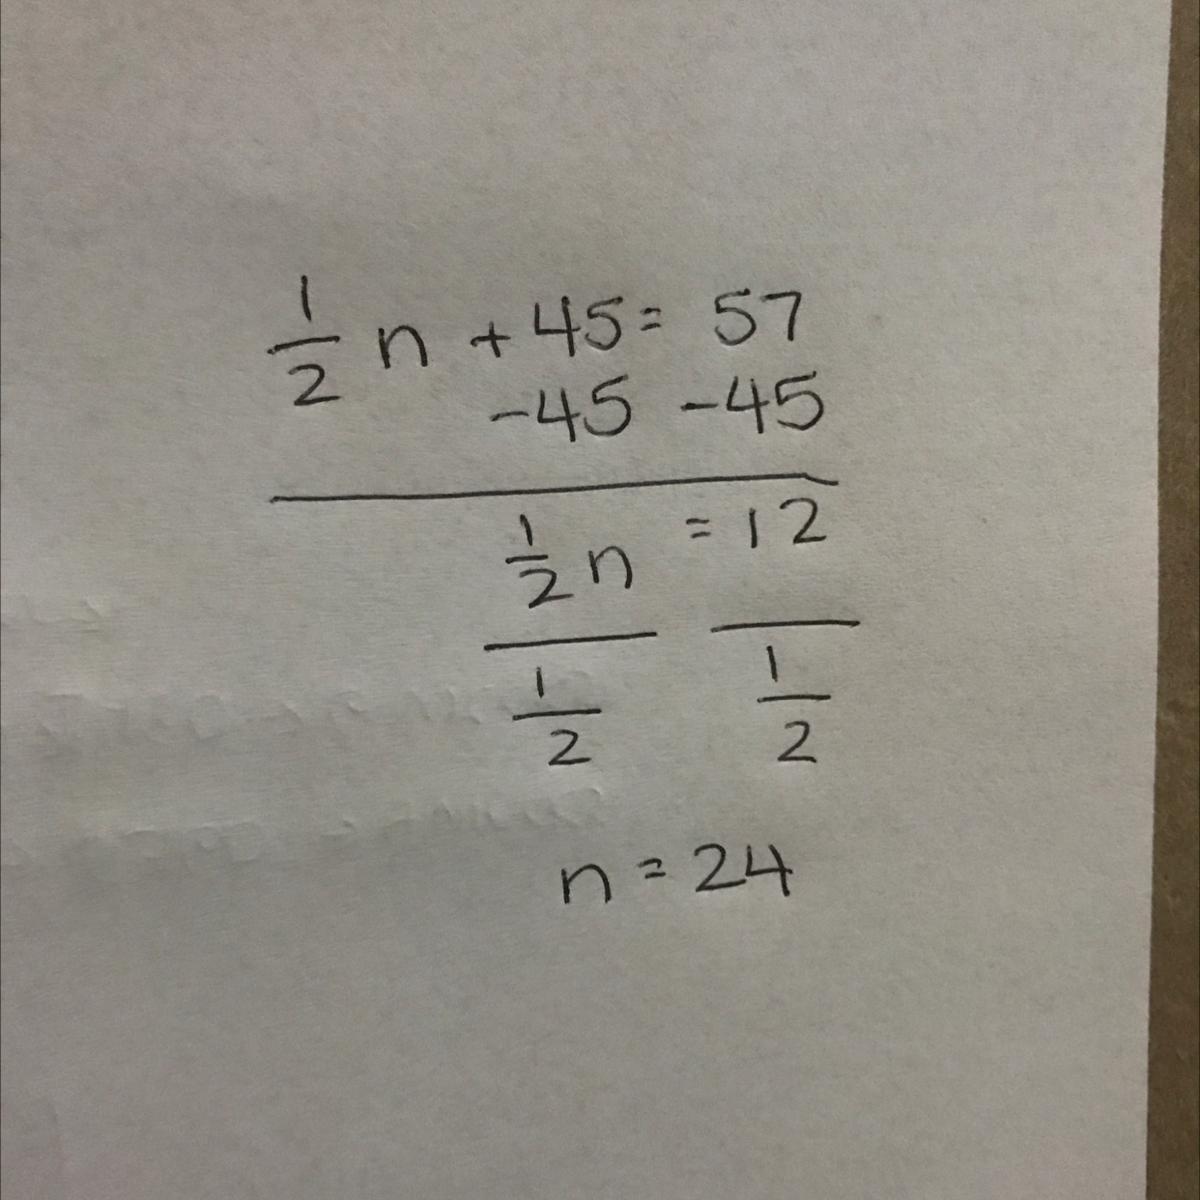 1/2 n + 45 = 57
-45 -45
1/2 n = 12
1/2 1/2
n = 24